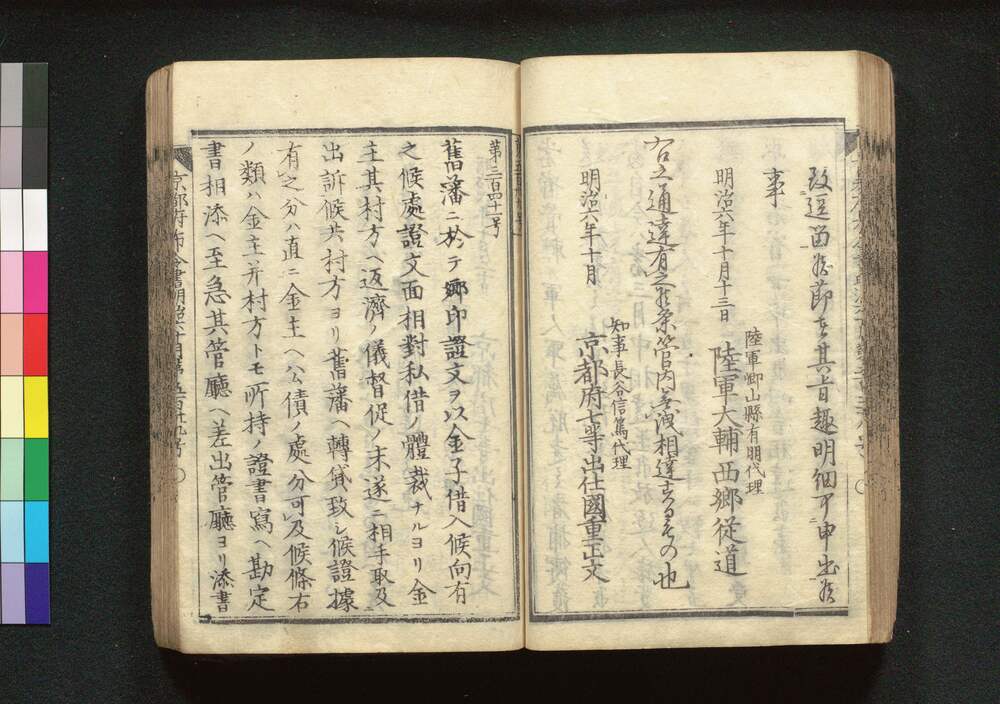 改逗留為節者其旨趣明細可申出候
事
陸軍卿山縣有朋代理
明治六年十月十三日 陸軍大輔西郷從道
右之通達有之候条管内無洩相達するもの也
知事長谷信篤代理
明治六年十月 京都府七等出仕國重正文
第三百四十一号
舊藩ニ於テ郷印證文ヲ以金子借入候向有
之候處證文面相對私借ノ體裁ナルヨリ金
主其村方ヘ返濟ノ儀督促ノ末遂ニ相手取及
出訴候共村方ヨリ舊藩ヘ轉貸致シ候證據
有之分ハ直ニ金主ヘ公債ノ處分可及候條右
ノ類ハ金主并村方トモ所持ノ證書寫ヘ勘定
書相添ヘ至急其管廳ヘ差出管廳ヨリ添書
京都府布令書明治六年十月第五百廿九号